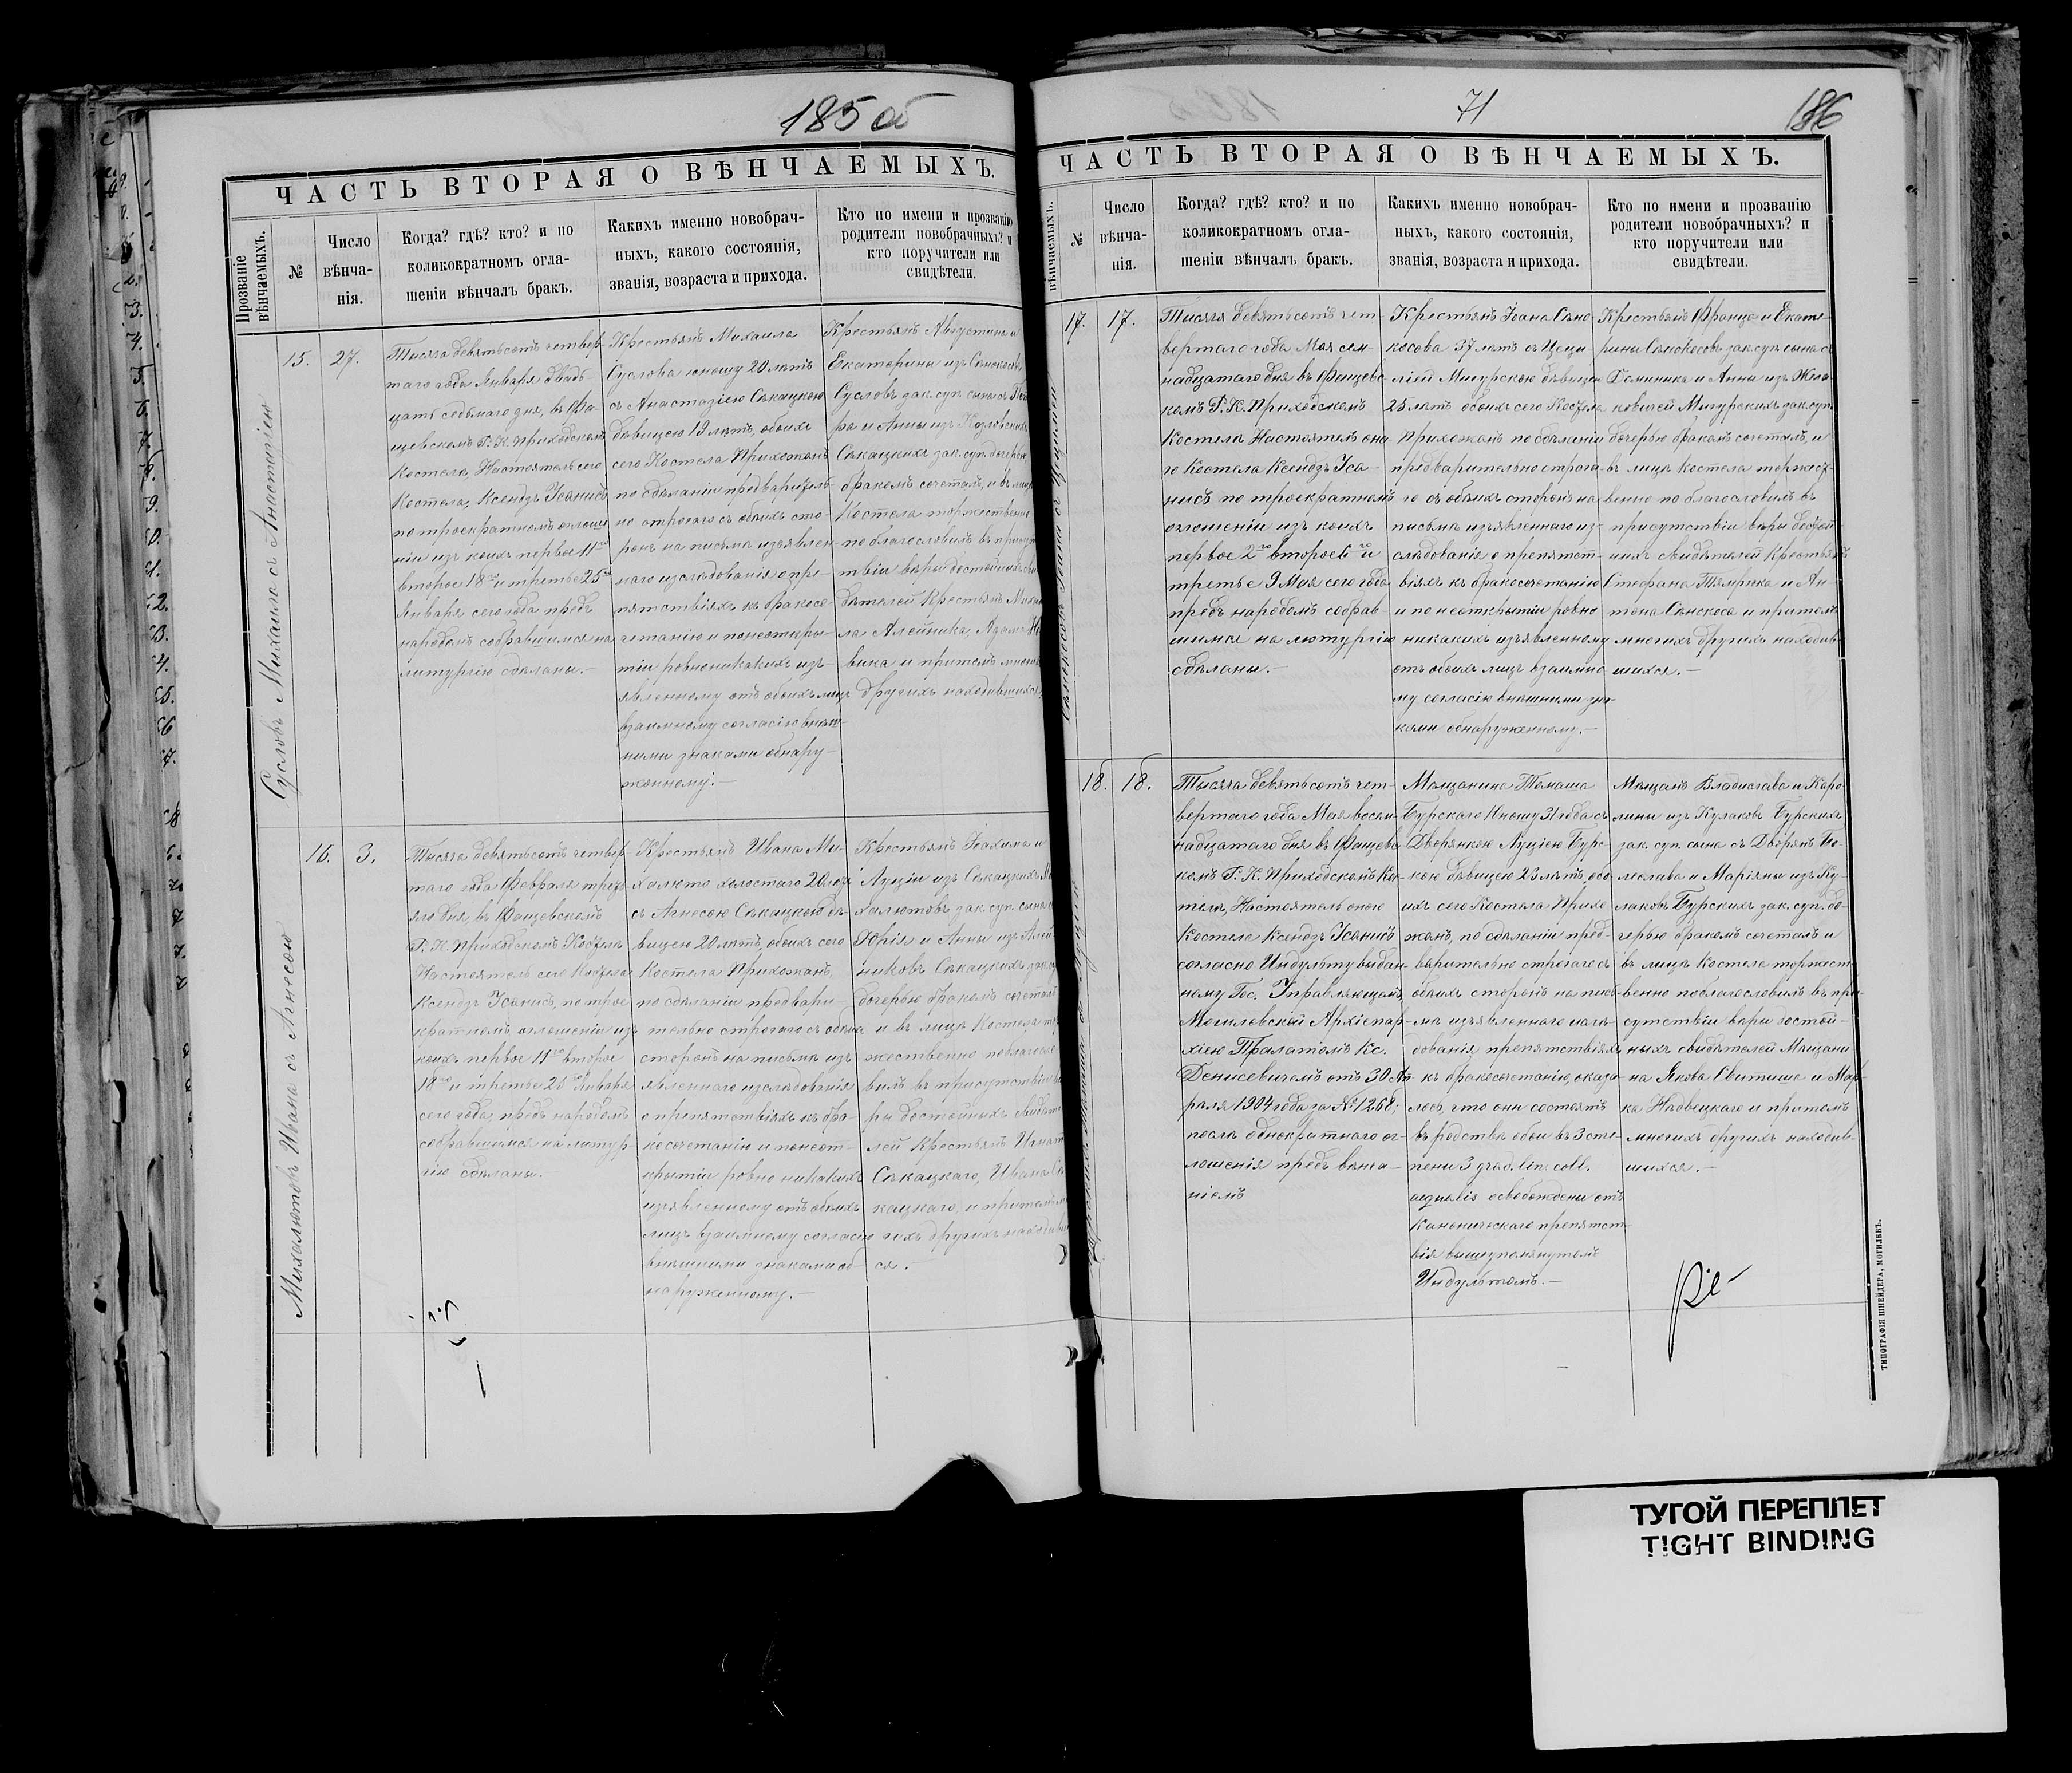 185 об
ЧАСТЬ ВТОРАЯ О ВѢНЧАЕМЫХЪ.
Прозваніе вѣнчаемыхъ.
№
Число вѣнча-
нія.
Когда? гдѣ? кто? и по
коликократномъ огла-
шеніи вѣнчалъ бракъ.
Какихъ именно новобрач-
ныхъ, какого состоянія,
званія, возраста и прихода.
Кто по имени и прозванію
родители новобрачныхъ? и
кто поручители или
свидѣтели.
Сусловъ Михаила съ Анастазіею
15.
27.
Тысяча девятьсотъ четвер-
таго года Января двад-
цать седьмаго дня, въ Фа-
щевскомъ Р. К. Приходскомъ
Костелѣ, Настоятель сего
Костела, Ксендзъ Исаннсъ
по троекратномъ оглаше
ніи изъ коихъ первое 11го
второе 18го и третье 25го
Января сего года предъ
народомъ собравшимся на
литургію сдѣланы.-
Крестьянъ Михаила
Суслова юношу 20 лѣтъ
съ Анастазіею Сѣкацкою
дѣвицею 19 лѣтъ, обоихъ
сего Костела Прихожанъ
по сдѣланіи предваритель-
но строгаго съ обоихъ сто-
ронъ на письмѣ изъявлен-
наго изслѣдованія о пре-
пятствіяхъ къ бракосо-
четанію и понеоткры-
тіи ровно никакихъ изъ-
явленному отъ обоихъ лицъ
взаимному согласію внѣш-
ними знаками обнару-
женному.-
Крестьянъ Августина и
Екатерины изъ
Сусловъ зак. суп. сына съ
ра и Анны изъ Козловскихъ
Сѣкацкихъ зак. суп. дочерью
бракомъ сочеталъ, и въ лицѣ
Костела торжественно
по благословилъ въ присут
твіи вѣры достойныхъ сви
дѣтелей Крестьянъ Михаи
ла Алейника, Адама
вика и притомъ многихъ
другихъ находившихся.
Михалютовъ Ивана съ Агнесою
16.
3.
Тысяча девятьсотъ четвер
таго года Февраля треть
яго дня, въ Фащевскомъ
Р. К. Приходскомъ Костелѣ
Настоятель сего Костела
Ксендзъ Исаннсъ, по трое
кратномъ оглашеніи изъ
коихъ первое 11го второе
18го и третье 25го Января
сего года, предъ народомъ
собравшимся на литур-
гію сдѣланы.-
Крестьянъ Ивана Ми-
халюто холостаго 20 лѣтъ
съ Агнесою Сѣкацкою дѣ-
вицею 20 лѣтъ, обоихъ сего
Костела Прихожанъ,
по сдѣланіи предвари-
тельно строгаго съ обѣихъ
сторонъ на письмѣ изъ
явленнаго изслѣдованія
о препятствіяхъ къ бра-
косочетанію и понеот-
крытіи ровно никакихъ
изъявленному отъ обоихъ
лицъ взаимному согласію
внѣшними знаками об-
наруженному.-
Крестьянъ Іоахима и
Луціи изъ Сѣкацкихъ Ми
халютовъ зак. суп. сына съ
Юрія и Анны изъ Алей
никовъ Сѣкацкихъ зак. суп.
дочерью бракомъ сочеталъ
и въ лицѣ Костела тор
жественно поблагосло
вилъ въ присутствіи вѣ
ры достойныхъ свидѣте
лей Крестьянъ Игнат
Сѣкацкаго, Ивана Сѣ
кацкаго, и притомъ мно
гихъ другихъ находивш
ся.-
71
186
ЧАСТЬ ВТОРАЯ О ВѢНЧАЕМЫХЪ.
вѣнчаемыхъ.
№
Число
вѣнча-
нія.
Когда? гдѣ? кто? и по
коликократномъ огла-
шеніи вѣнчалъ бракъ.
Какихъ именно новобрач-
ныхъ, какого состоянія,
званія, возраста и прихода.
Кто по имени и прозванію
родители новобрачныхъ? и
кто поручители или
свидѣтели.
17.
17.
Тысяча девятьсотъ чет-
вертаго года Мая сем-
надцатаго дня въ Фащевс-
комъ Р. К. Приходскомъ
Костелѣ Настоятель она-
го Костела Ксендзъ Иса-
ннсъ по троекратномъ
оглашеніи изъ коихъ
первое 2го второе 6го и
третье 9 Мая сего года
предъ народомъ собрав-
шимся на литургію
сдѣланы.-
Крестьянъ Іоана Сѣно
косова 37 лѣтъ съ Цеци
ліей Мигурскою дѣвицею
25 лѣтъ обоихъ сего Костела
Прихожанъ по сдѣланіи
предварительно строга-
го съ обѣихъ сторонъ на
письмѣ изъявленнаго из-
слѣдованія о препятст-
віяхъ къ бракосочетанію
и по неоткрытіи ровно
никакихъ изъявленному
отъ обоихъ лицъ взаимно
му согласію внѣшними зна-
ками обнаруженному.-
Крестьянъ Франца и Екате-
рины Сѣнокосовъ зак. суп. сына съ
Доминика и Анны изъ
Мигурскихъ зак. суп.
дочерью бракомъ сочеталъ, и
въ лицѣ Костела торжест-
венно по благословилъ въ
присутствіи вѣры достой-
ныхъ свидѣтелей Крестьянъ
Стефана и Ан-
тона Сѣнокоса и притомъ
многихъ другихъ находив-
шихся.-
18.
18.
Тысяча девятьсотъ чет-
вертаго года Мая восем-
надцатаго дня въ Фащевс
комъ Р. К. Приходскомъ Ко-
стелѣ, Настоятель онаго
Костела Ксендзъ Исаннсъ
согласно Индульту выдан-
ному Гос. Управляющимъ
Могилевской Архіепар-
хіею Прелатомъ Кс.
Денисевичемъ отъ 30 Ап-
рѣля 1904 года за № 1268;
послѣ однократнаго ог-
лашенія предъ вѣнча-
ніемъ
Мѣщанина Томаша
Бурскаго Юношу 31 года съ
Дворянкою Луціею Бурс-
кою дѣвицею 23 лѣтъ, обо-
ихъ сего Костела Прихо
жанъ, по сдѣланіи пред-
варительно строгаго съ
обоихъ сторонъ на пись-
мѣ изъявленнаго изслѣ-
дованія препятствіяхъ
къ бракосочетанію, оказа-
лось, что они состоятъ
въ родствѣ обои въ 3 сте-
пени 3 grad. lin. coll.
aequalis освобождены отъ
Каноническаго препятст-
вія вышеупомянутымъ
Индультомъ.-
Мѣщанъ Владислава и Каро
лины изъ Кулаковъ Бурскихъ
зак. суп. сына съ Дворянъ Бо-
леслава и Маріяны изъ Ку-
лаковъ Бурскихъ зак. суп. до-
черью бракомъ сочеталъ и
въ лицѣ Костела торжест
венно поблагословилъ въ при-
сутствіи вѣры достой-
ныхъ свидѣтелей Мѣщани
на Якова Свитише и Мар-
ка и притомъ
многихъ другихъ находив-
шихся.-
ТИПОГРАФІЯ ШНЕЙДЕРА, МОГИЛЕВЪ.
ТУГОЙ ПЕРЕПЛЕТ
TIGHT BINDING